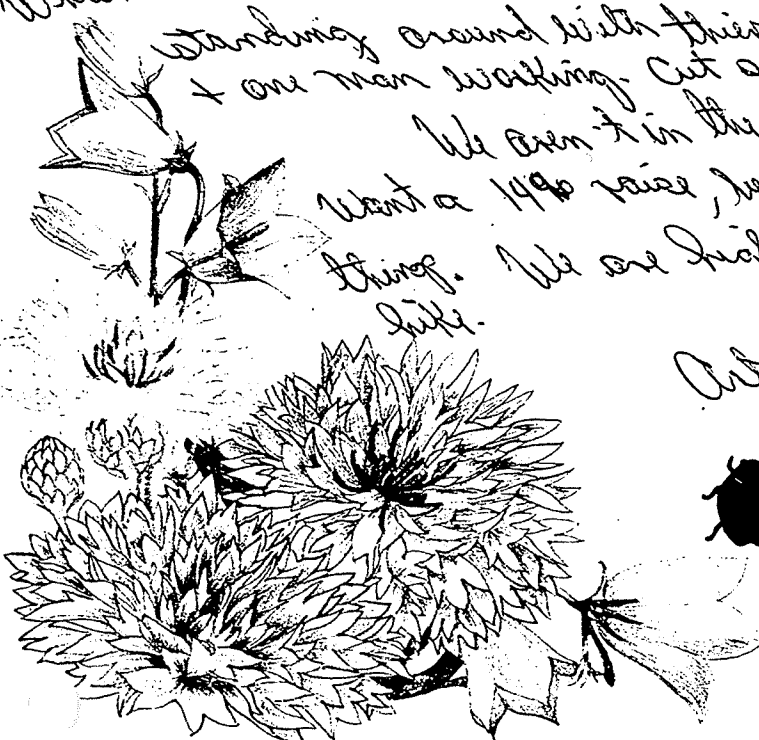 standing around with
+ one man working. Cut
We aren't in the
Want a 14% raise,
thing. We are
hike.